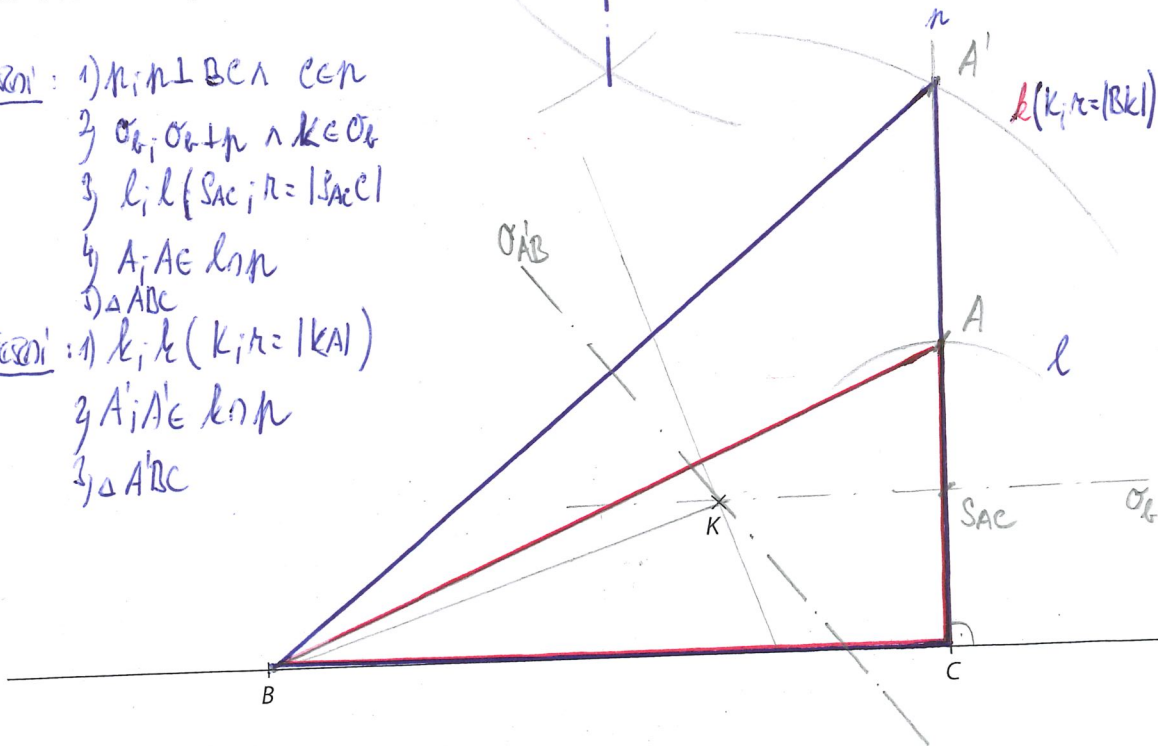 : 1) p; p ⊥ BC ∧ C ∈ p
2) σb; σb ⊥ p ∧ K ∈ σb
3) l; l (SAC; r = |SACC|
4) A; A ∈ l ∩ p
5) △ ABC
: 1) k; k (K; r = |KA|)
2) A'; A' ∈ k ∩ p
3) △ A'BC
p
A'
k (K; r = |BK|)
σA'B
A
l
K
SAC
σb
B
C